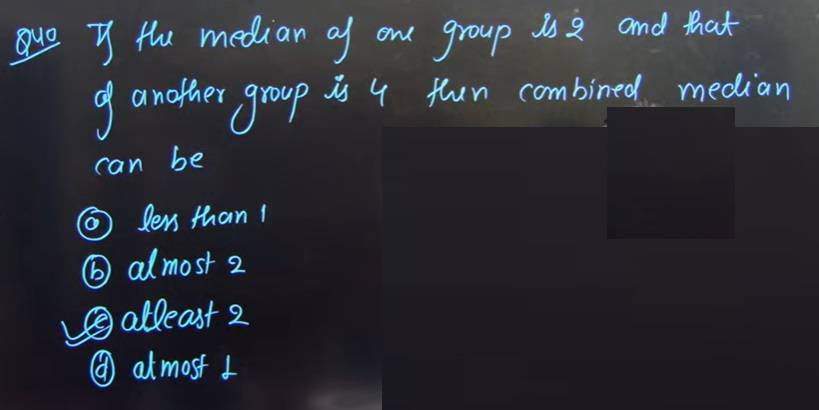 Q40 If the median of one group is 2 and that
of another group is 4 then combined median
can be
(a) less than 1
(b) almost 2
(c) atleast 2
(d) atmost 1